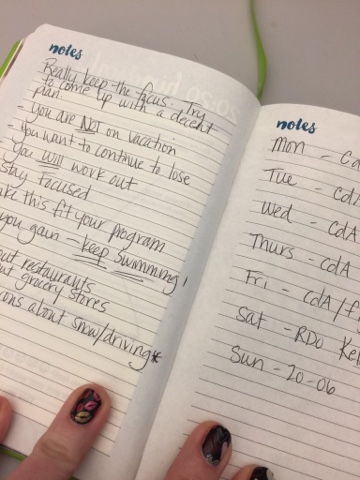 notes
Really keep the focus. Try
to come up with a decent
plan
- you are NOT on vacation
you want to continue to lose
you will work out
stay focused
this fit your program
you gain - keep swimming!
restaurants
grocery stores
about snow/driving*
notes
Mon - CdA
Tue - CdA
Wed - CdA
Thurs - CdA
Fri - CdA/
Sat - RDO
Sun - 20-06